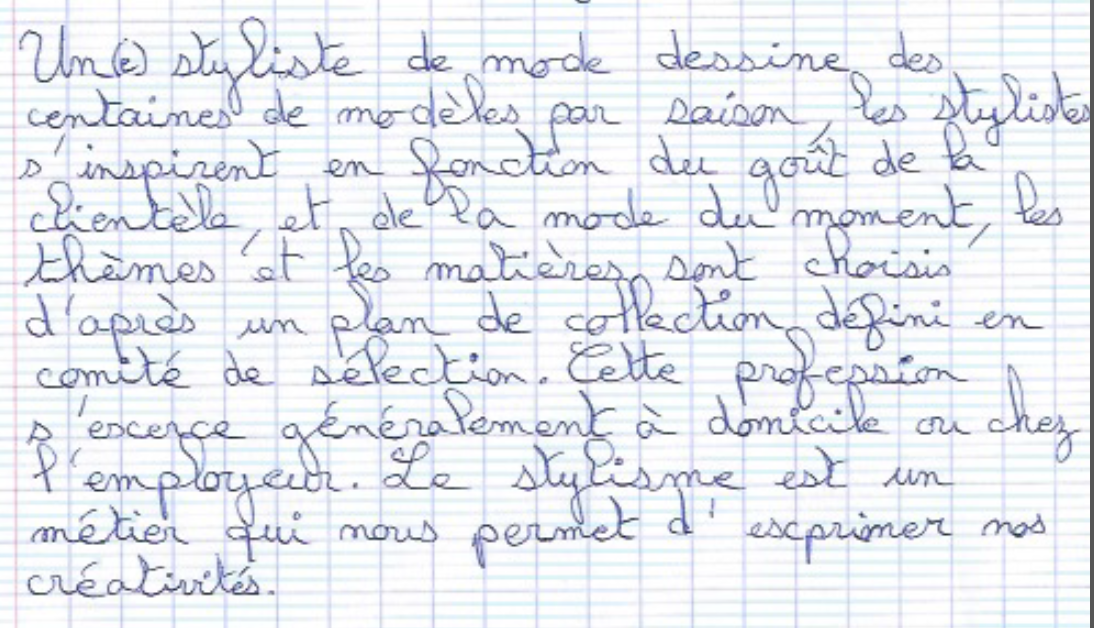 Un(e) styliste de mode dessine des
centaines de modèles par saison, les stylistes
s'inspirent en fonction du goût de la
clientèle, et de la mode du moment, les
thèmes et les matières sont choisis
d'après un plan de collection, défini en
comité de sélection. Cette profession
s'excerçe généralement à domicile ou chez
l'employeur. Le stylisme est un
métier qui nous permet d'exprimer nos
créativités.